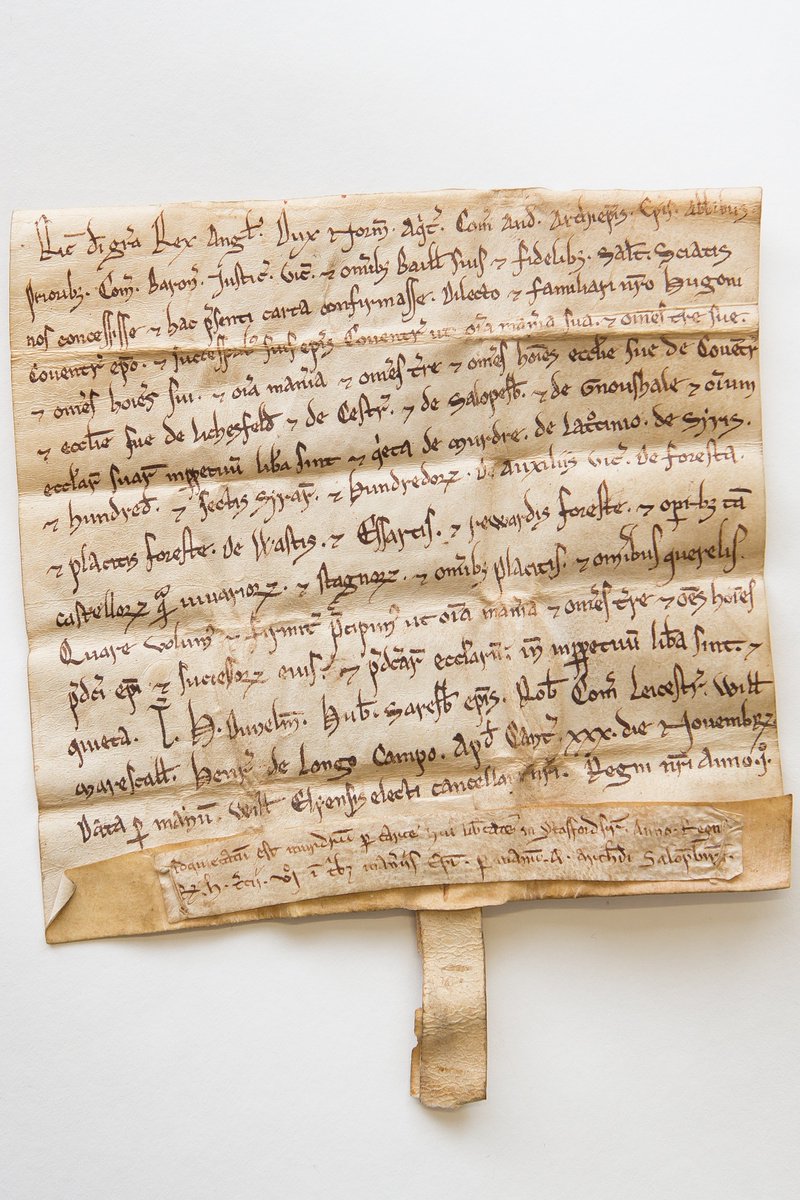 Ric̄ di gr̄a Rex Angl̄. Dux Norm̄. Aqit̄. Com̄ And̄. Archiep̄is. Ep̄is. Abb̄ibus
Priorib⁊. Com̄. Baron̄. Justic̄. Vic̄. ⁊ om̄ib⁊ Baill̄ suis ⁊ fidelib⁊. Salt̄. Sciatis
nos concessisse ⁊ hac p̄senti carta confirmasse. Dilecto ⁊ familiari nr̄o Hugoni
Coventr̄ ep̄o. ⁊ successorib⁊ suis ep̄is Coventr̄ ut om̄ia man̄ia sua. ⁊ om̄es tr̄e sue.
⁊ om̄es hoīes sui. ⁊ oīa man̄ia ⁊ om̄es tr̄e ⁊ om̄es hoīes eccl̄ie sue de Coventr̄
⁊ eccl̄ie sue de Lichesfeld̄ ⁊ de Cestr̄. ⁊ de Salopesb̄. ⁊ de Gnoushale ⁊ oīum
eccl̄ar̄ suar̄ inp̄petuū lib̄a sint ⁊ q̄ieta de Murdre. de Lat̊cinio. de Syris.
⁊ hundred̄. ⁊ sectis Syrar̄. ⁊ Hundredoꝝ. de Auxiliis vic̄. De foresta.
⁊ placitis foreste. De Wastis. ⁊ Essartis. ⁊ rewardis foreste. ⁊ op̄ib⁊ tā
castelloꝝ q̄ vivarioꝝ. ⁊ stagnoꝝ. ⁊ om̄ib⁊ placitis. ⁊ om̄ibus querelis.
Quare volum̄ ⁊ firmit̄ p̄cipim̄ ut oīa man̄ia ⁊ om̄es tr̄e ⁊ oēs hoīes
p̄dc̄i ep̄i ⁊ successoꝝ eius. ⁊ p̄dc̄ar̄ eccl̄arū. inp̄petuū lib̄a sint. ⁊
quieta. T. H. Dunelm̄. Hub̄. Saresb̄ ep̄is. Rob̄. Com̄ Leicestr̄. Will̄
Marescall̄. Henr̄ de Longo Campo. Apd̄ Cant̄ xxx. die Novembꝝ
Data p̄ manū. Will̄ Elyensis electi cancellar̄ nr̄i. Regni nr̄i Anno. p̊.
Adquietatū est murdrum p̄ carte hui lib̄tatē in Stafordsr̄. Anno Regn̄
R. H. t̄cii. in man̄iis Ep̄i. p̄ manū. archid̄i Salopb̄